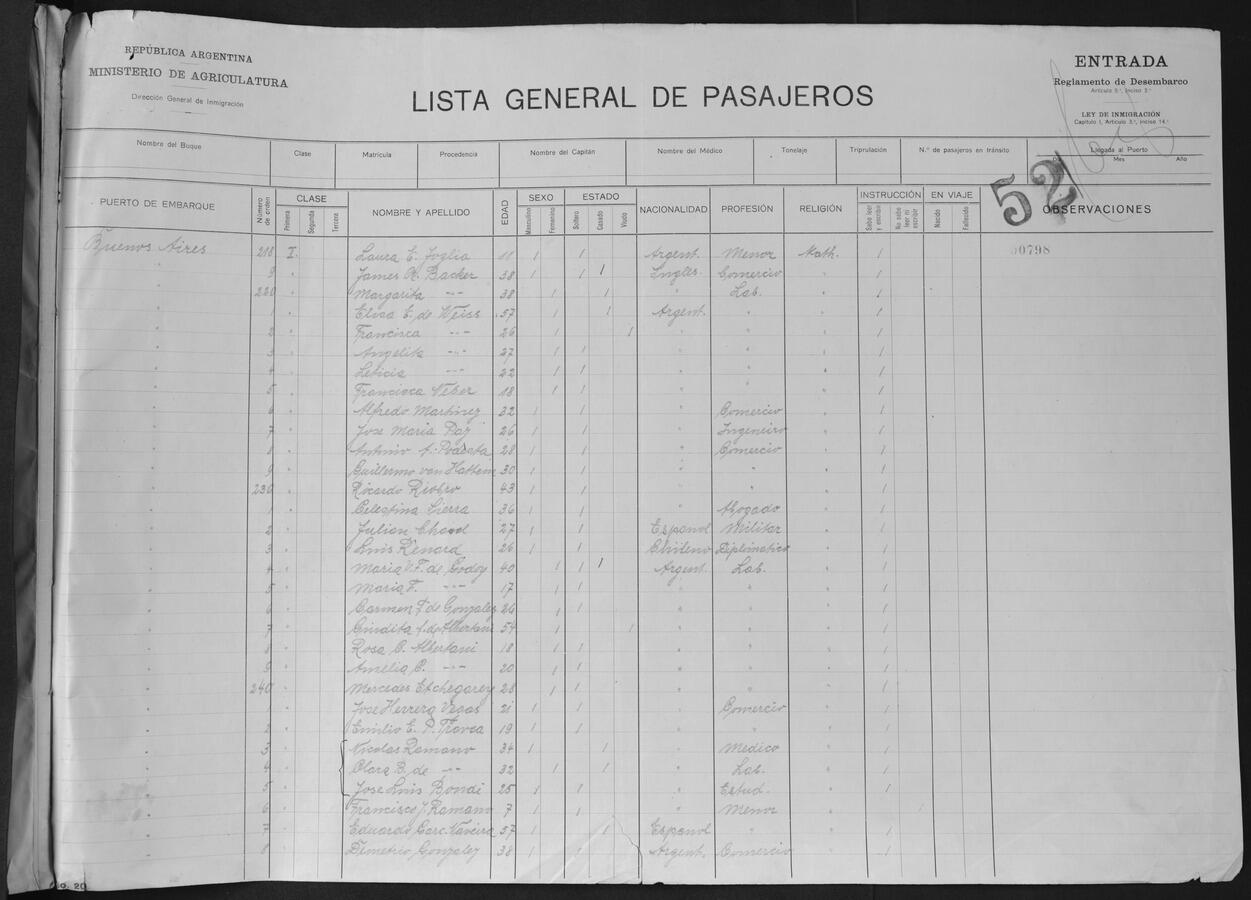 REPÚBLICA ARGENTINA
MINISTERIO DE AGRICULTURA
Dirección General de Inmigración
LISTA GENERAL DE PASAJEROS
ENTRADA
Reglamento de Desembarco
Artículo 5º, Inciso 2º
LEY DE INMIGRACIÓN
Capítulo I, Artículo 3º, Inciso 14º
Nombre del Buque Clase Matrícula Procedencia Nombre del Capitán Nombre del Médico Tonelaje Tripulación N.º de pasajeros en tránsito Llegada al Puerto
Día Mes Año
52
PUERTO DE EMBARQUE Número de orden CLASE Primera Segunda Tercera NOMBRE Y APELLIDO EDAD SEXO Masculino Femenino ESTADO Soltero Casado Viudo NACIONALIDAD PROFESIÓN RELIGIÓN INSTRUCCIÓN Sabe leer y escribir No sabe leer ni escribir EN VIAJE Nacido Fallecido OBSERVACIONES
Buenos Aires 218 I. Laura E. Foglia 11 1 1 Argent. Menor Kath. 1 50798
" 9 " James R. Backer 38 1 1 1 Ingles Comercio " 1
" 220 " Margarita -·-- 38 1 1 " Lab. " 1
" 1 " Elisa E. de Weiss 57 1 1 Argent. " " 1
" 2 " Francisca -·-- 26 1 1 " " " 1
" 3 " Angelita -·-- 27 1 1 " " " 1
" 4 " Leticia -·-- 22 1 1 " " " 1
" 5 " Francisca Weber 18 1 1 " " " 1
" 6 " Alfredo Martinez 32 1 1 " Comercio " 1
" 7 " Jose Maria Paz 26 1 1 " Ingeniero " 1
" 8 " Antonio A. 28 1 1 " Comercio " 1
" 9 " Guillermo van Hattem 30 1 1 " " " 1
" 230 " Ricardo Riobro 43 1 1 " " " 1
" 1 " Celestina Sierra 36 1 1 " Abogado " 1
" 2 " Julian 27 1 1 Español Militar " 1
" 3 " Luis Renard 26 1 1 Chileno Diplomatico " 1
" 4 " Maria V. F. de Godoy 40 1 1 1 Argent. Lab. " 1
" 5 " Maria F. -·-- 17 1 1 " " " 1
" 6 " Carmen F. de Gonzalez 26 1 1 " " " 1
" 7 " A. de Albertani 54 1 1 " " " 1
" 8 " Rosa C. Albertani 18 1 1 " " " 1
" 9 " Amelia C. -·-- 20 1 1 " " " 1
" 240 " Mercedes Etchegarey 28 1 1 " " " 1
" 1 " Jose Herrera Vegas 21 1 1 " Comercio " 1
" 2 " Emilio E. P. 19 1 1 " " " 1
" 3 " Nicolas Romano 34 1 1 " Medico " 1
" 4 " Clara B. de -·-- 32 1 1 " Lab. " 1
" 5 " Jose Luis Bondi 25 1 1 " Estud. " 1
" 6 " Francisco J. Romano 7 1 1 " Menor "
" 7 " Eduardo Garc. 57 1 1 Español " 1
" 8 " Demetrio Gonzalez 38 1 1 Argent. Comercio " 1